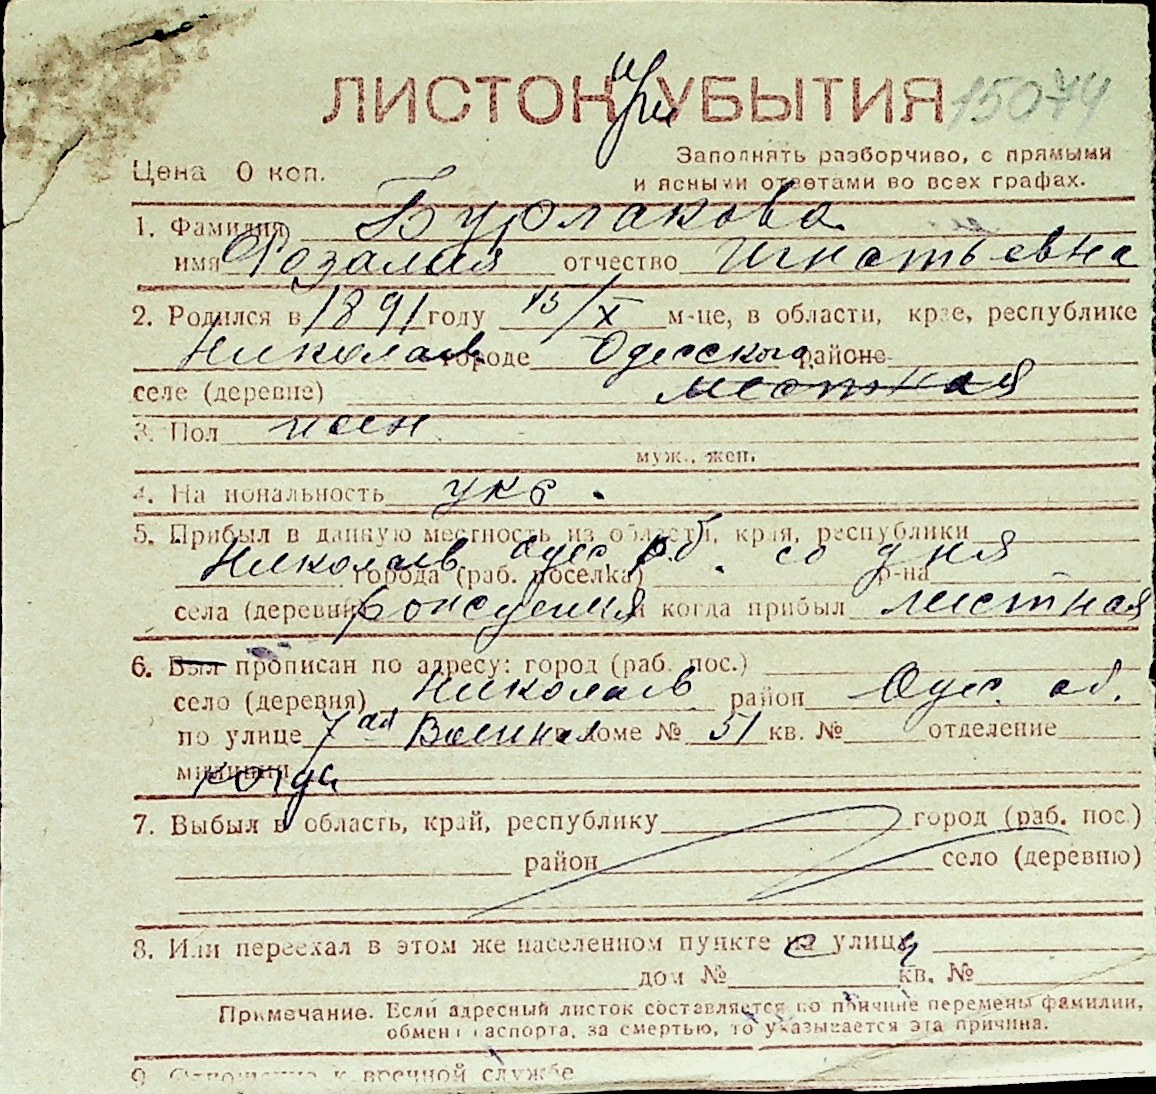 ЛИСТОК при УБЫТИЯ 15074
Цена 0 коп.
Заполнять разборчиво, с прямыми
и ясными ответами во всех графах.
1. Фамилия Бурлакова
имя Розалия отчество Игнатьевна
2. Родился в 1891 году 15/X м-це, в области, крае, республике
Николаев городе Одесской районе
селе (деревне) местная
3. Пол жен
муж., жен.
4. Национальность укр.
5. Прибыл в данную местность из области, края, республики
Николаев Одес об. со дня
города (раб. поселка) р-на
села (деревни) рождения и когда прибыл местная
6. Был прописан по адресу: город (раб. пос.)
село (деревня) Николаев район Одес. об.
по улице 7 ая Военная в доме № 51 кв. № отделение
милиции когда
7. Выбыл в область, край, республику город (раб. пос.)
район село (деревню)
8. Или переехал в этом же населенном пункте с улицы
дом № кв. №
Примечание. Если адресный листок составляется по причине перемены фамилии,
обмен паспорта, за смертью, то указывается эта причина.
9. Отношение к военной службе